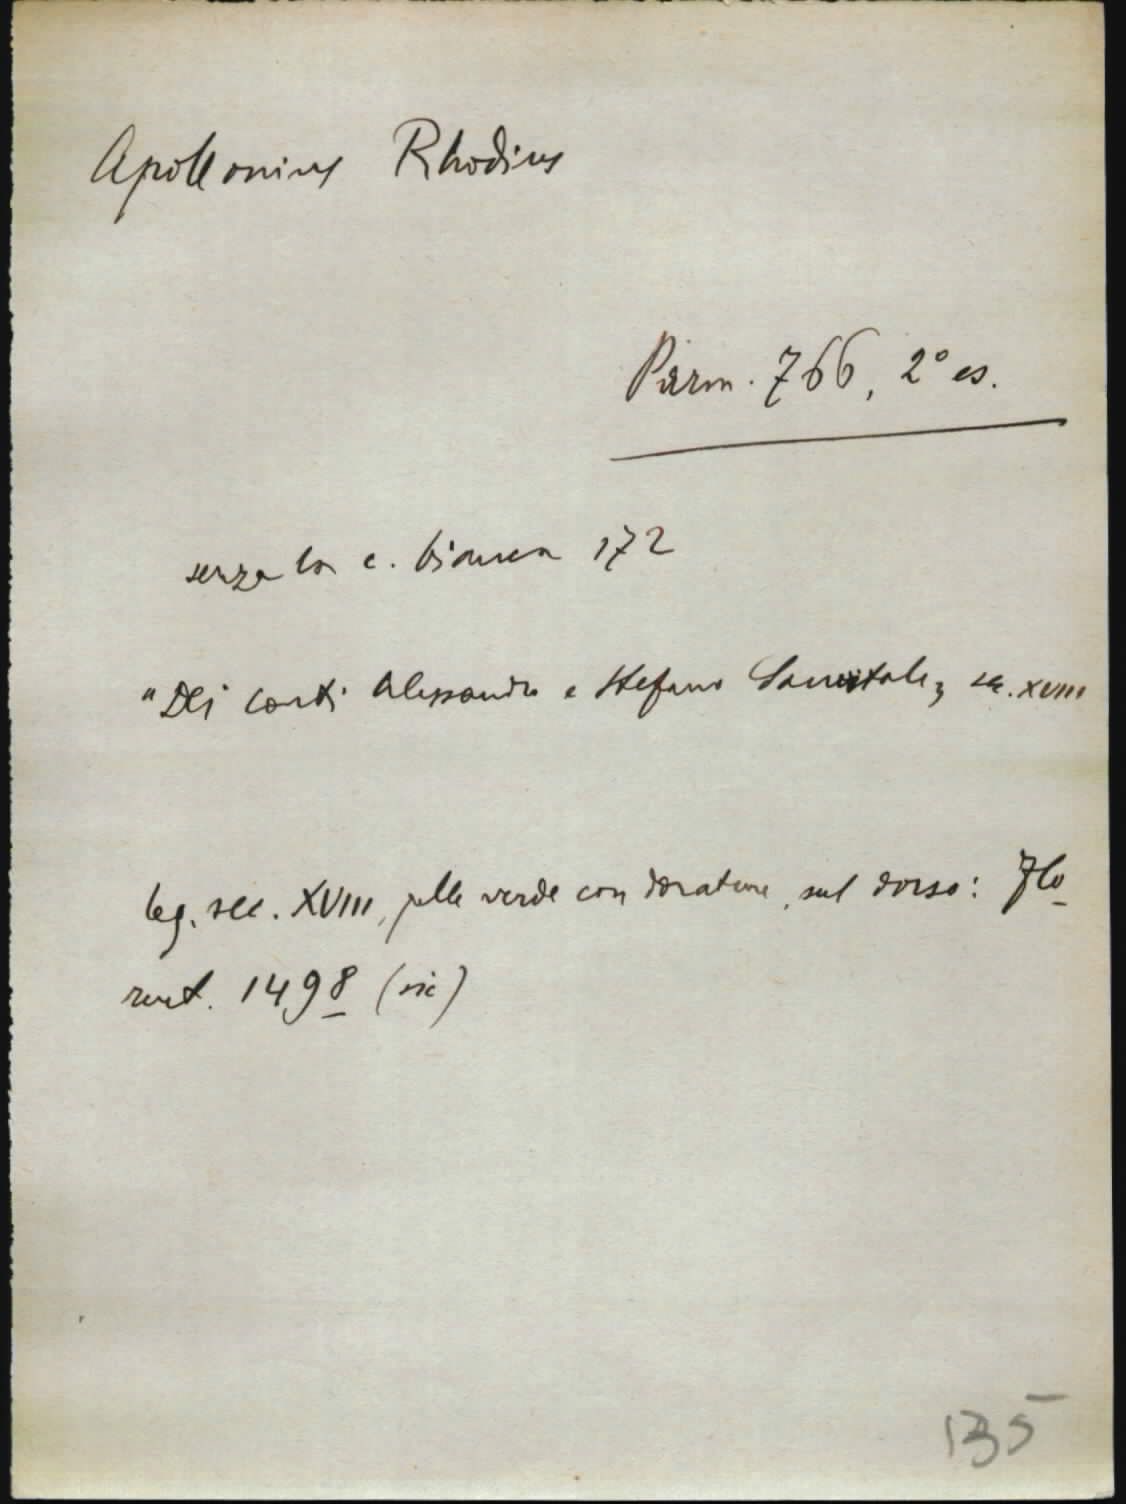 Apollonius Rhodius
Parm. 766, 2° es.
senza la c. bianca 172
"Dei Conti Alessandro e Stefano Sanvitale", sec. XVIII
leg. sec. XVIII, pelle verde con dorature, sul dorso: Flo-
rent. 1498 (sic)
135